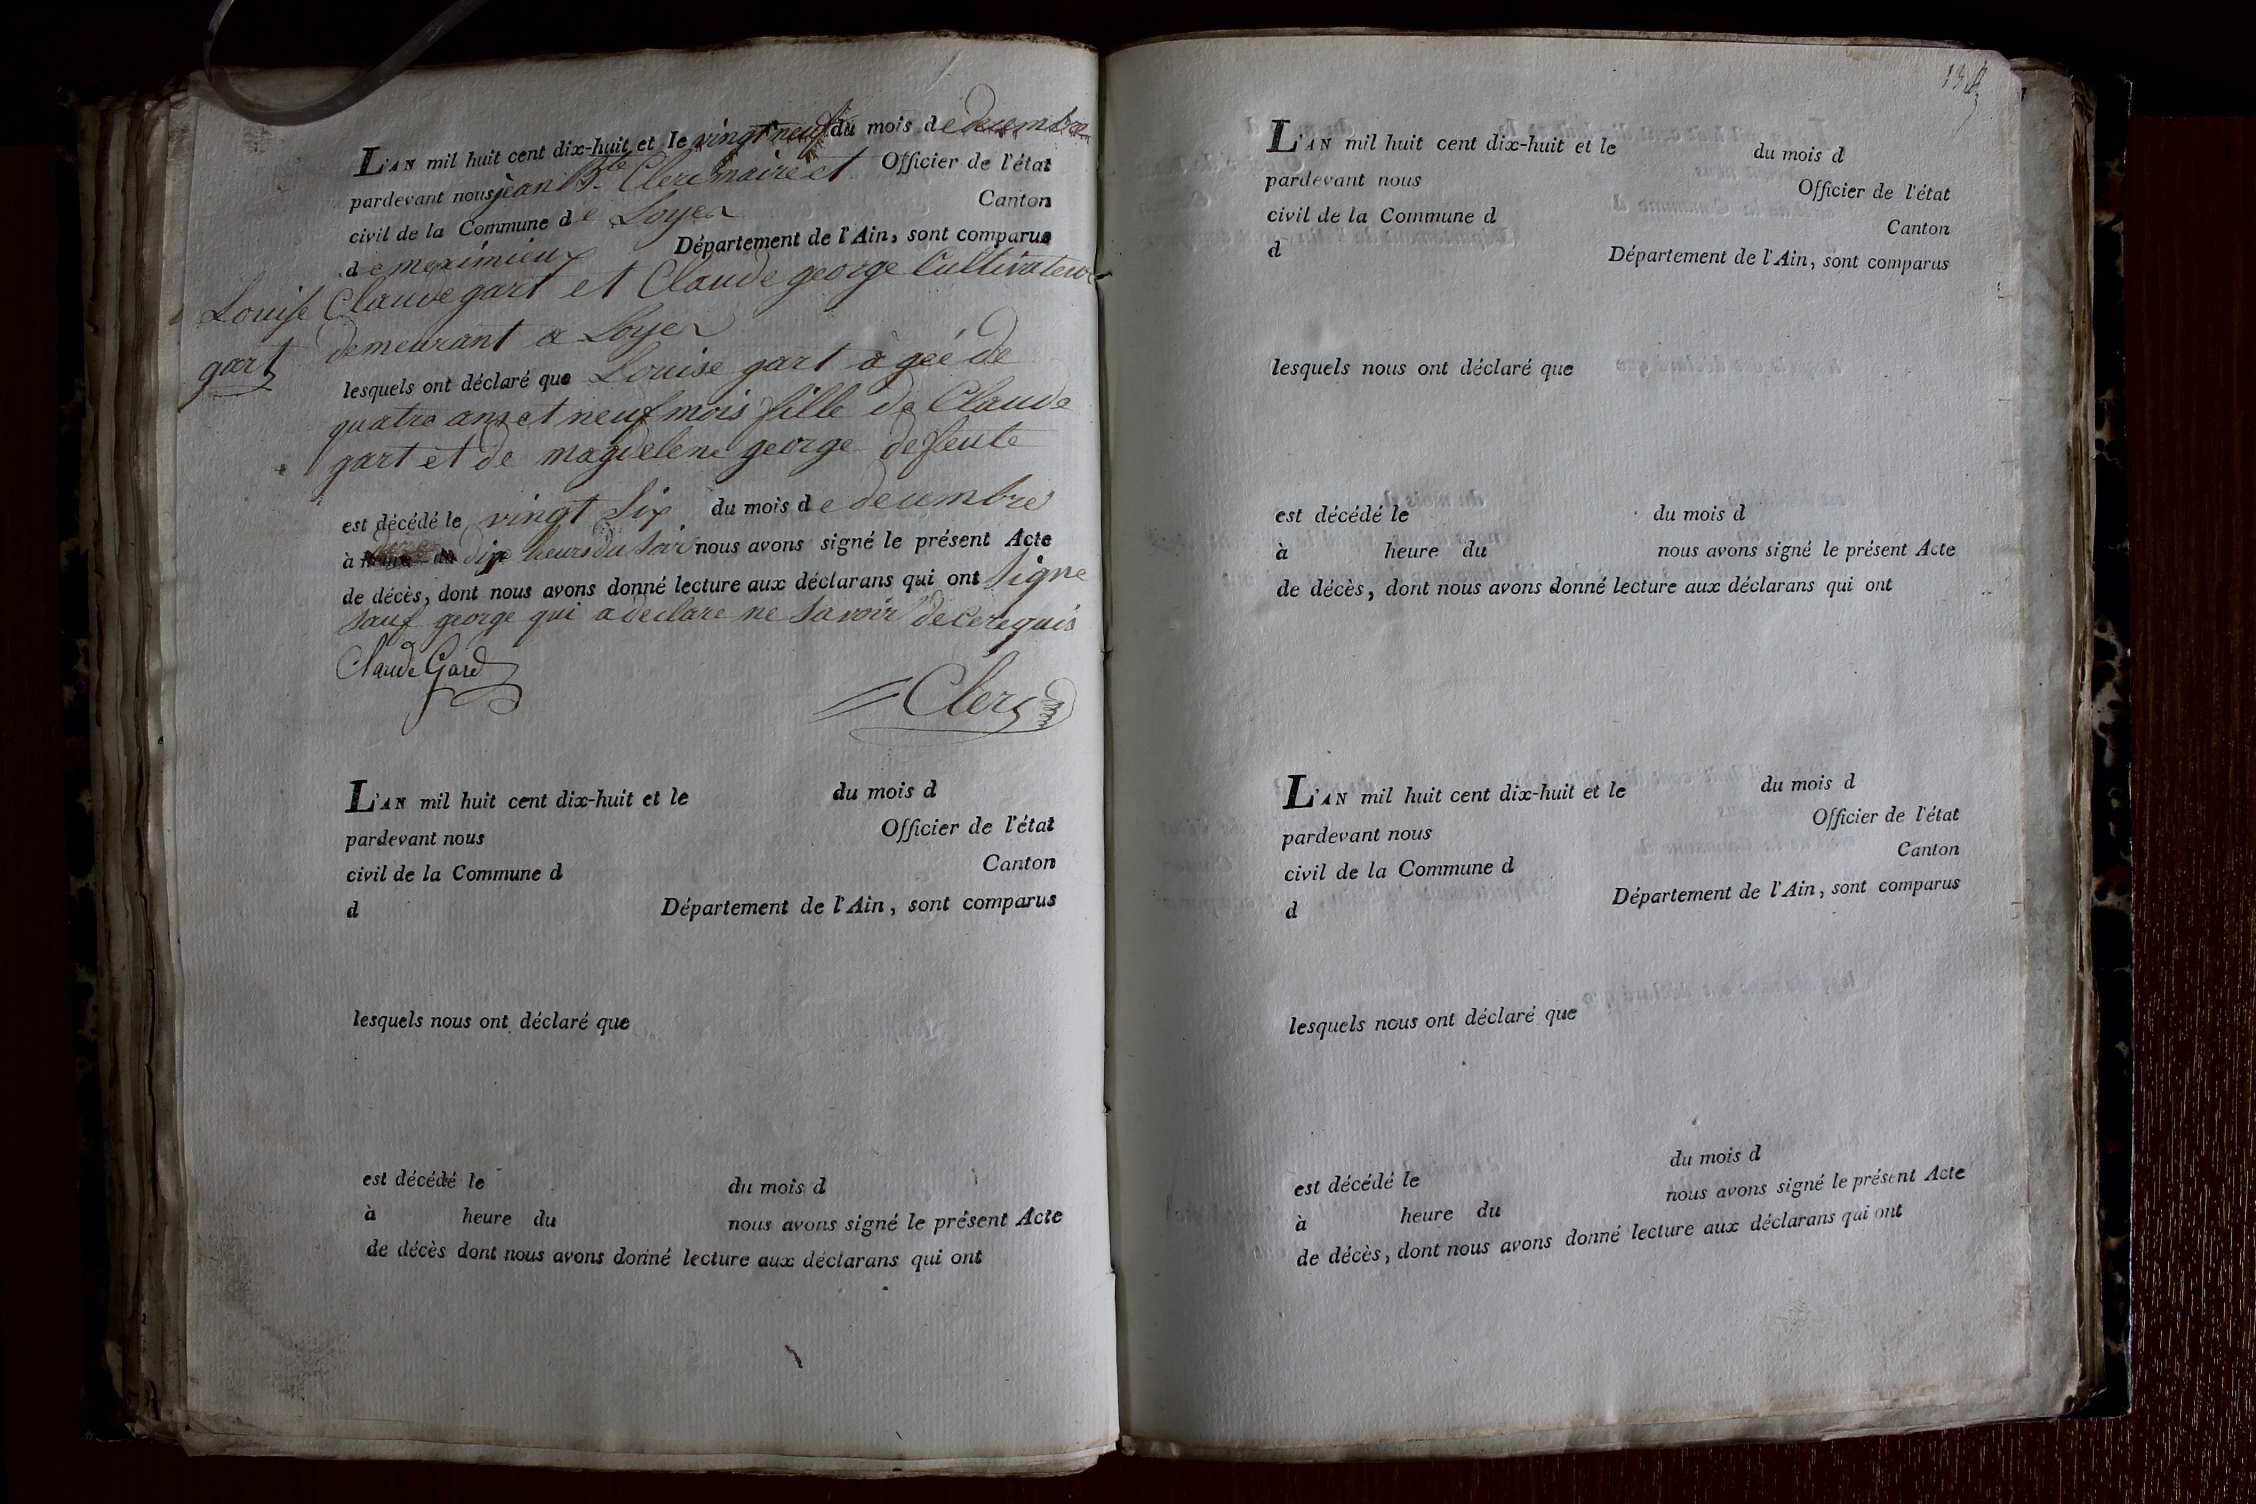 L'AN mil huit cent dix-huit et le vingt neuf du mois de decembre
pardevant nous jean Bte Clerc maire et Officier de l'état
civil de la Commune de Loyes Canton
de meximieux Département de l'Ain, sont comparus
Claude gart et Claude george Cultivateur
demeurant a Loyes
Louise
gart
lesquels ont déclaré que Louise gart àgeé de
quatre ans et neuf mois fille de Claude
gart et de magdelene george defeute
est décédé le vingt Six du mois de decembre
à dix heurs du soir nous avons signé le présent Acte
de décès, dont nous avons donné lecture aux déclarans qui ont Signe
sauf george qui a declare ne savoir de ce requis
Claude Gard
Clerc
L'AN mil huit cent dix-huit et le du mois d
pardevant nous Officier de l'état
civil de la Commune d Canton
d Département de l'Ain, sont comparus
lesquels nous ont déclaré que
est décédé le du mois d
à heure du nous avons signé le présent Acte
de décès dont nous avons donné lecture aux déclarans qui ont
L'AN mil huit cent dix-huit et le du mois d
pardevant nous Officier de l'état
civil de la Commune d Canton
d Département de l'Ain, sont comparus
lesquels nous ont déclaré que
est décédé le du mois d
à heure du nous avons signé le présent Acte
de décès, dont nous avons donné lecture aux déclarans qui ont
L'AN mil huit cent dix-huit et le du mois d
pardevant nous Officier de l'état
civil de la Commune d Canton
d Département de l'Ain, sont comparus
lesquels nous ont déclaré que
est décédé le du mois d
à heure du nous avons signé le présent Acte
de décès, dont nous avons donné lecture aux déclarans qui ont